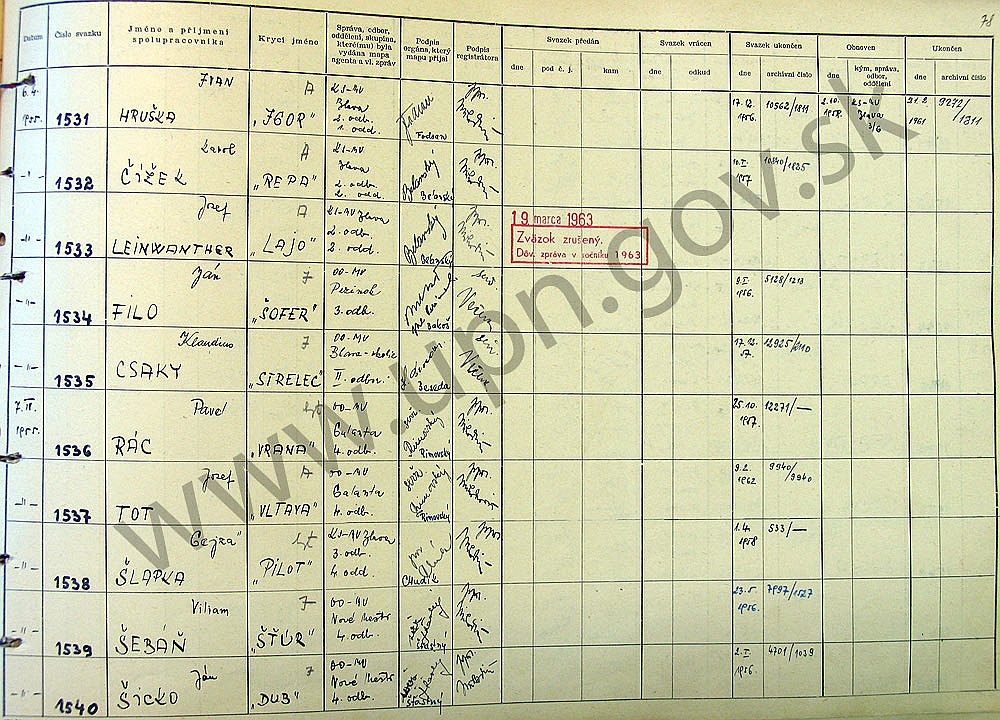 78
Datum
Číslo svazku
Jméno a příjmení
spolupracovníka
Krycí jméno
Správa, odbor,
oddělení, skupina,
které(mu) byla
vydána mapa
agenta a vl. zpráv
Podpis
orgána, který
mapu přijal
Podpis
registrátora
Svazek předán
dne
pod č. j.
kam
Svazek vrácen
dne
odkud
Svazek ukončen
dne
archivní číslo
Obnoven
dne
kým, správa,
odbor,
oddělení
Ukončen
dne
archivní číslo
6.4.
1955.
1531
Ivan
HRUŠKA
A
"IGOR"
KS-MV
Blava
2. odb.
1. odd.
Fodsan
17.12.
1956.
10562/1811
2.10.
1958.
KS-MV
Blava
3/6
21.2.
1961
9272/
1311
-"-
1532
Karol
ČÍŽEK
A
"REPA"
KS-MV
Blava
2. odb.
2. odd.
10.I.
1957
-"-
1533
Jozef
LEINWANTHER
A
"LAJO"
KS-MV Blava
2. odb.
2. odd.
19 marca 1963
Zväzok zrušený.
Dôv. zpráva v ročníku 1963
-"-
1534
Ján
FILO
7
"ŠOFER"
OO-MV
Pezinok
3. odb.
Bakoš
9.I.
1956.
5128/1213
-"-
1535
Klaudius
CSAKY
7
"STRELEC"
OO-MV
II. odbor.
Beseda
17.12.
57.
1955.
1536
Pavel
RÁC
"VRANA"
OO-MV
Galanta
4. odb.
Rimovský
25.10.
1957.
12271/—
-"-
1537
Jozef
TOT
A
"VLTAVA"
OO-MV
Galanta
4. odb.
Rimovský
9.2.
1962
9940/
9940
-"-
1538
Gejza
ŠLAPKA
"PILOT"
KS-MV Blava
3. odb.
4. odd.
Chudík
1.4.
1958
533/—
-"-
1539
Viliam
ŠEBÁŇ
7
"ŠTÚR"
OO-MV
Nové Mesto
4. odb.
šťastný
23.5.
1956.
7997/1527
-"-
1540
Ján
ŠICKO
7
"DUB"
OO-MV
Nové Mesto
4. odb.
šťastný
2.I.
1956.
4701/1039
www.upn.gov.sk